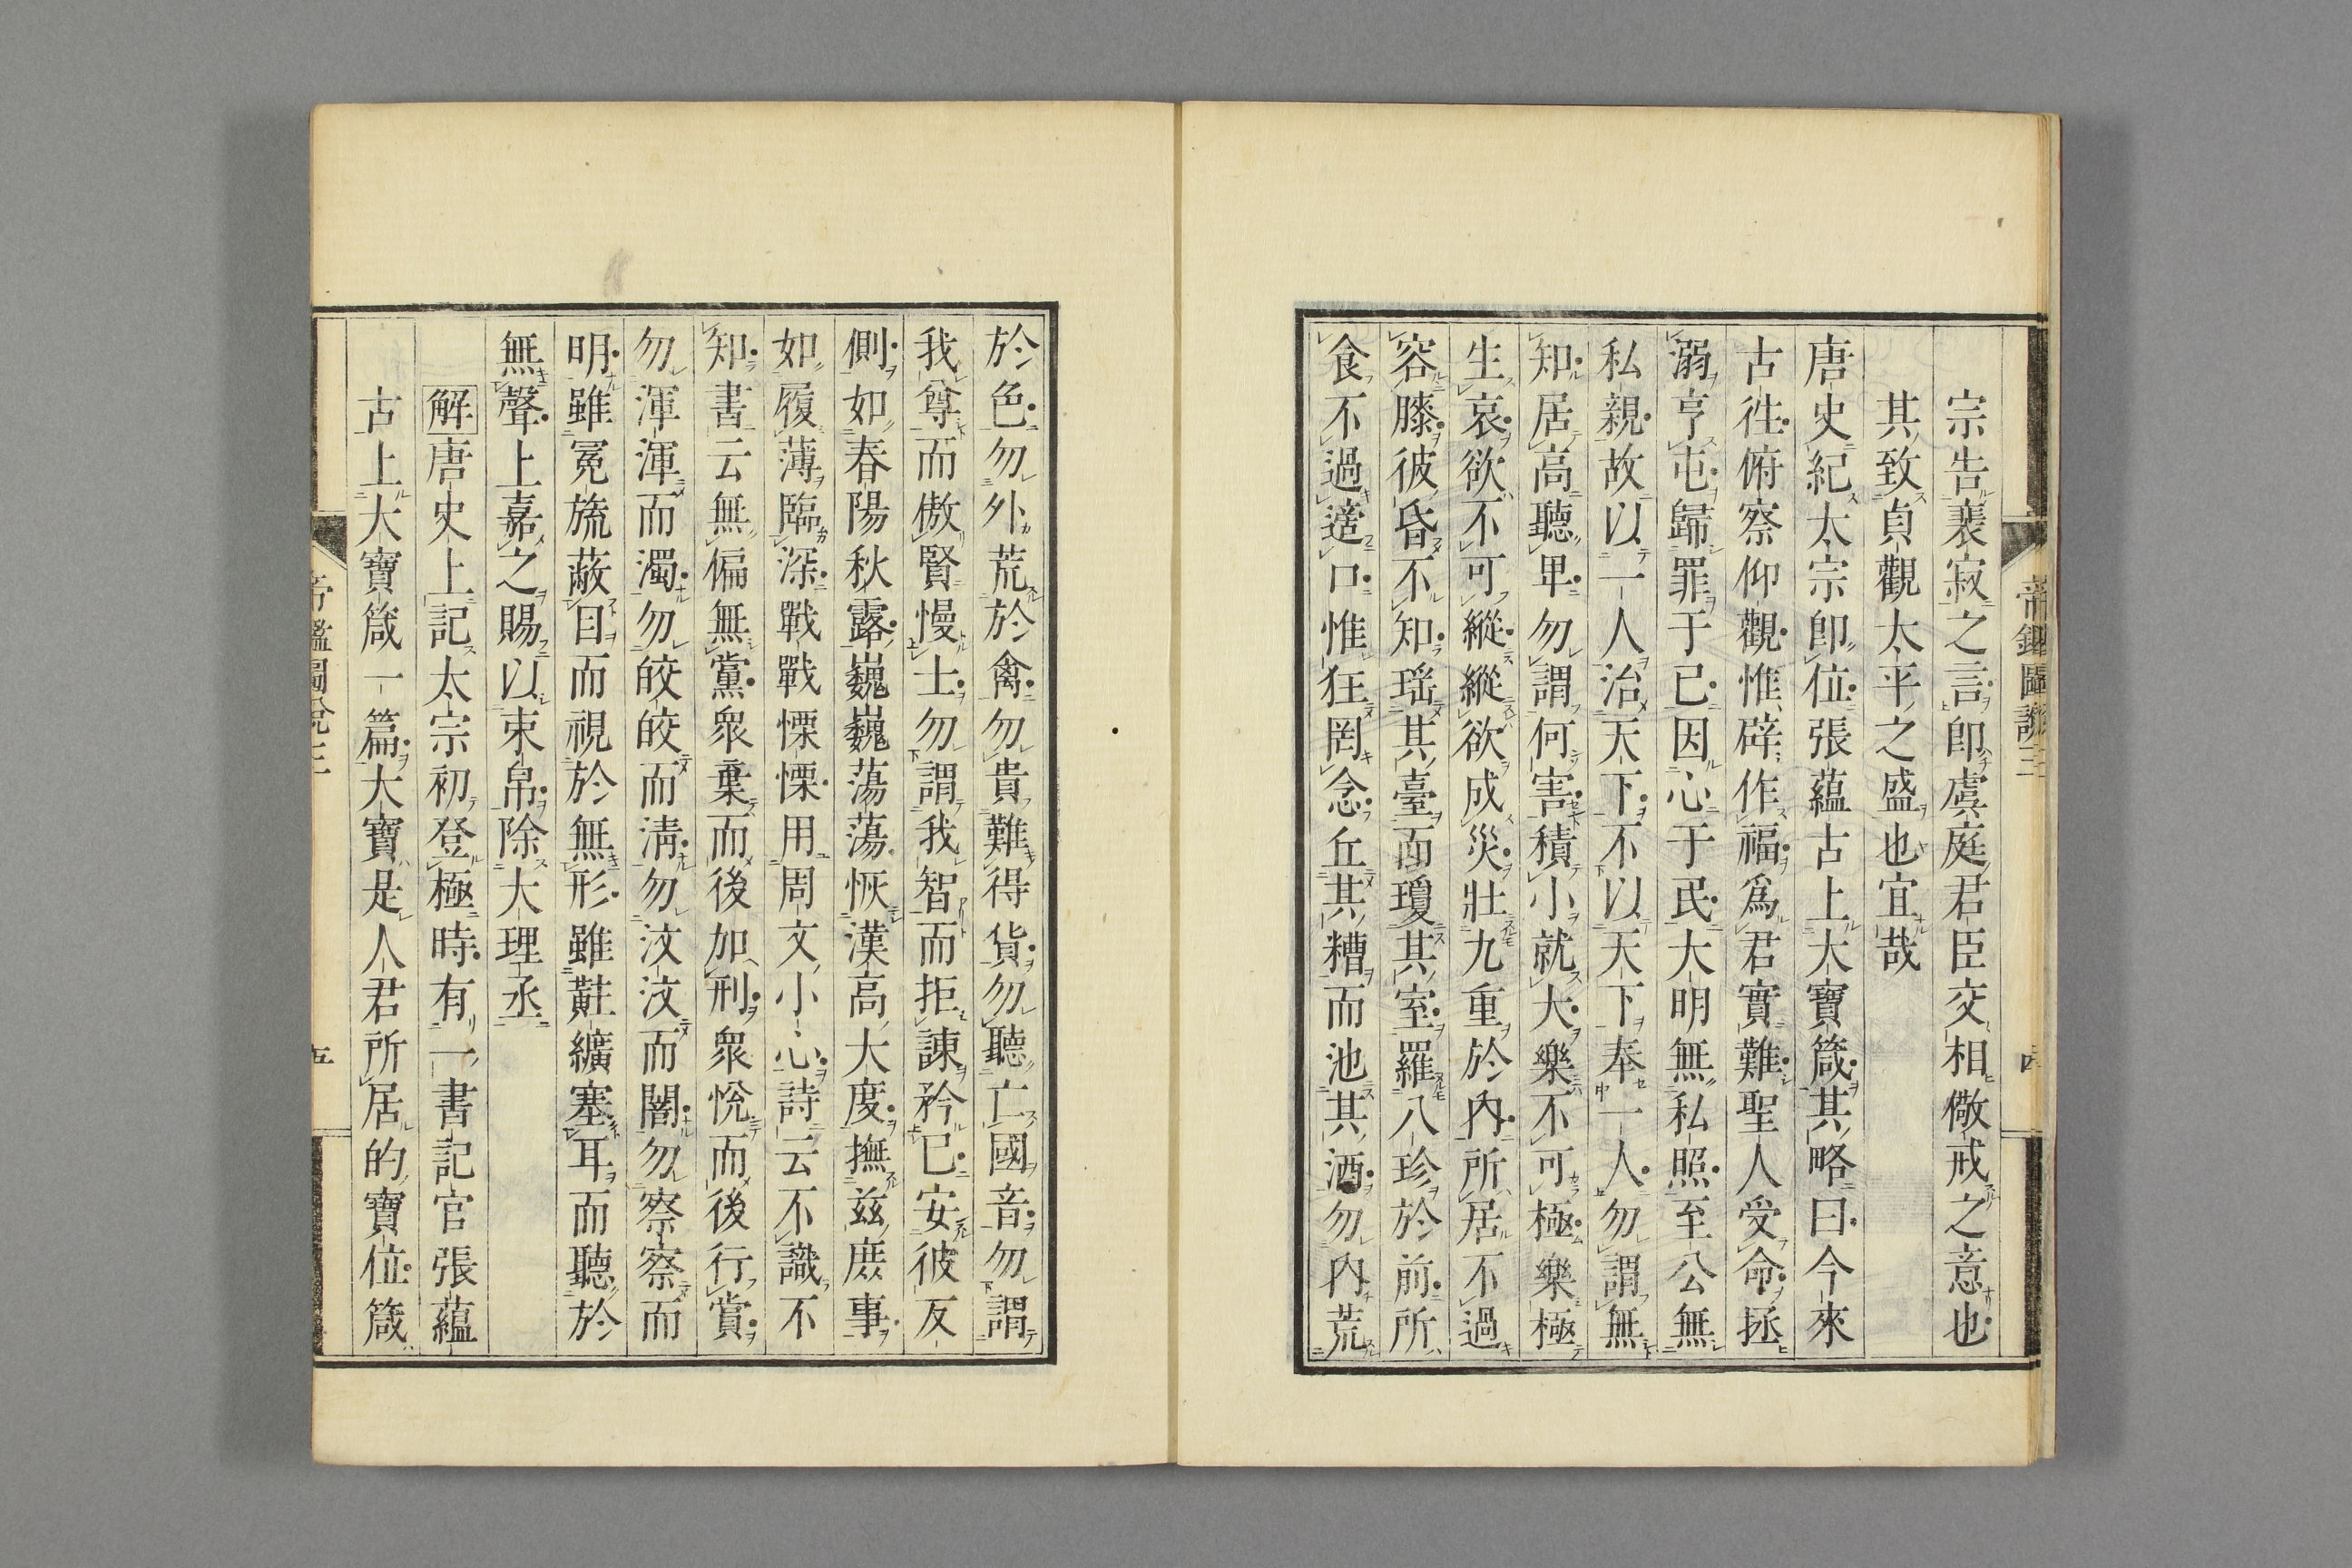 帝鑑圖說三
四
宗告裴寂之言卽虞庭君臣交相儆戒之意也
其致貞觀太平之盛也宜哉
唐史紀太宗卽位張蘊古上大寶箴其略曰今來
古徃俯察仰觀惟辟作福爲君實難聖人受命拯
溺亨屯歸罪于己因心于民大明無私照至公無
私親故以一人治天下不以天下奉一人勿謂無
知居高聽卑勿謂何害積小就大樂不可極樂極
生哀欲不可縱縱欲成災壯九重於內所居不過
容膝彼昏不知瑶其臺而瓊其室羅八珍於前所
食不過適口惟狂罔念丘其糟而池其酒勿內荒
於色勿外荒於禽勿貴難得貨勿聽亡國音勿謂
我尊而傲賢慢士勿謂我智而拒諫矜已安彼反
側如春陽秋露巍巍蕩蕩恢漢高大度撫兹庶事
如履薄臨深戰戰慄慄用周文小心詩云不識不
知書云無偏無黨衆棄而後加刑衆悅而後行賞
勿渾渾而濁勿皎皎而淸勿汶汶而闇勿察察而
明雖冕旒蔽目而視於無形雖黈纊塞耳而聽於
無聲上嘉之賜以束帛除大理丞
解唐史上記太宗初登極時有一書記官張蘊
古上大寶箴一篇大寶是人君所居的寶位箴
帝鑑圖說三
五